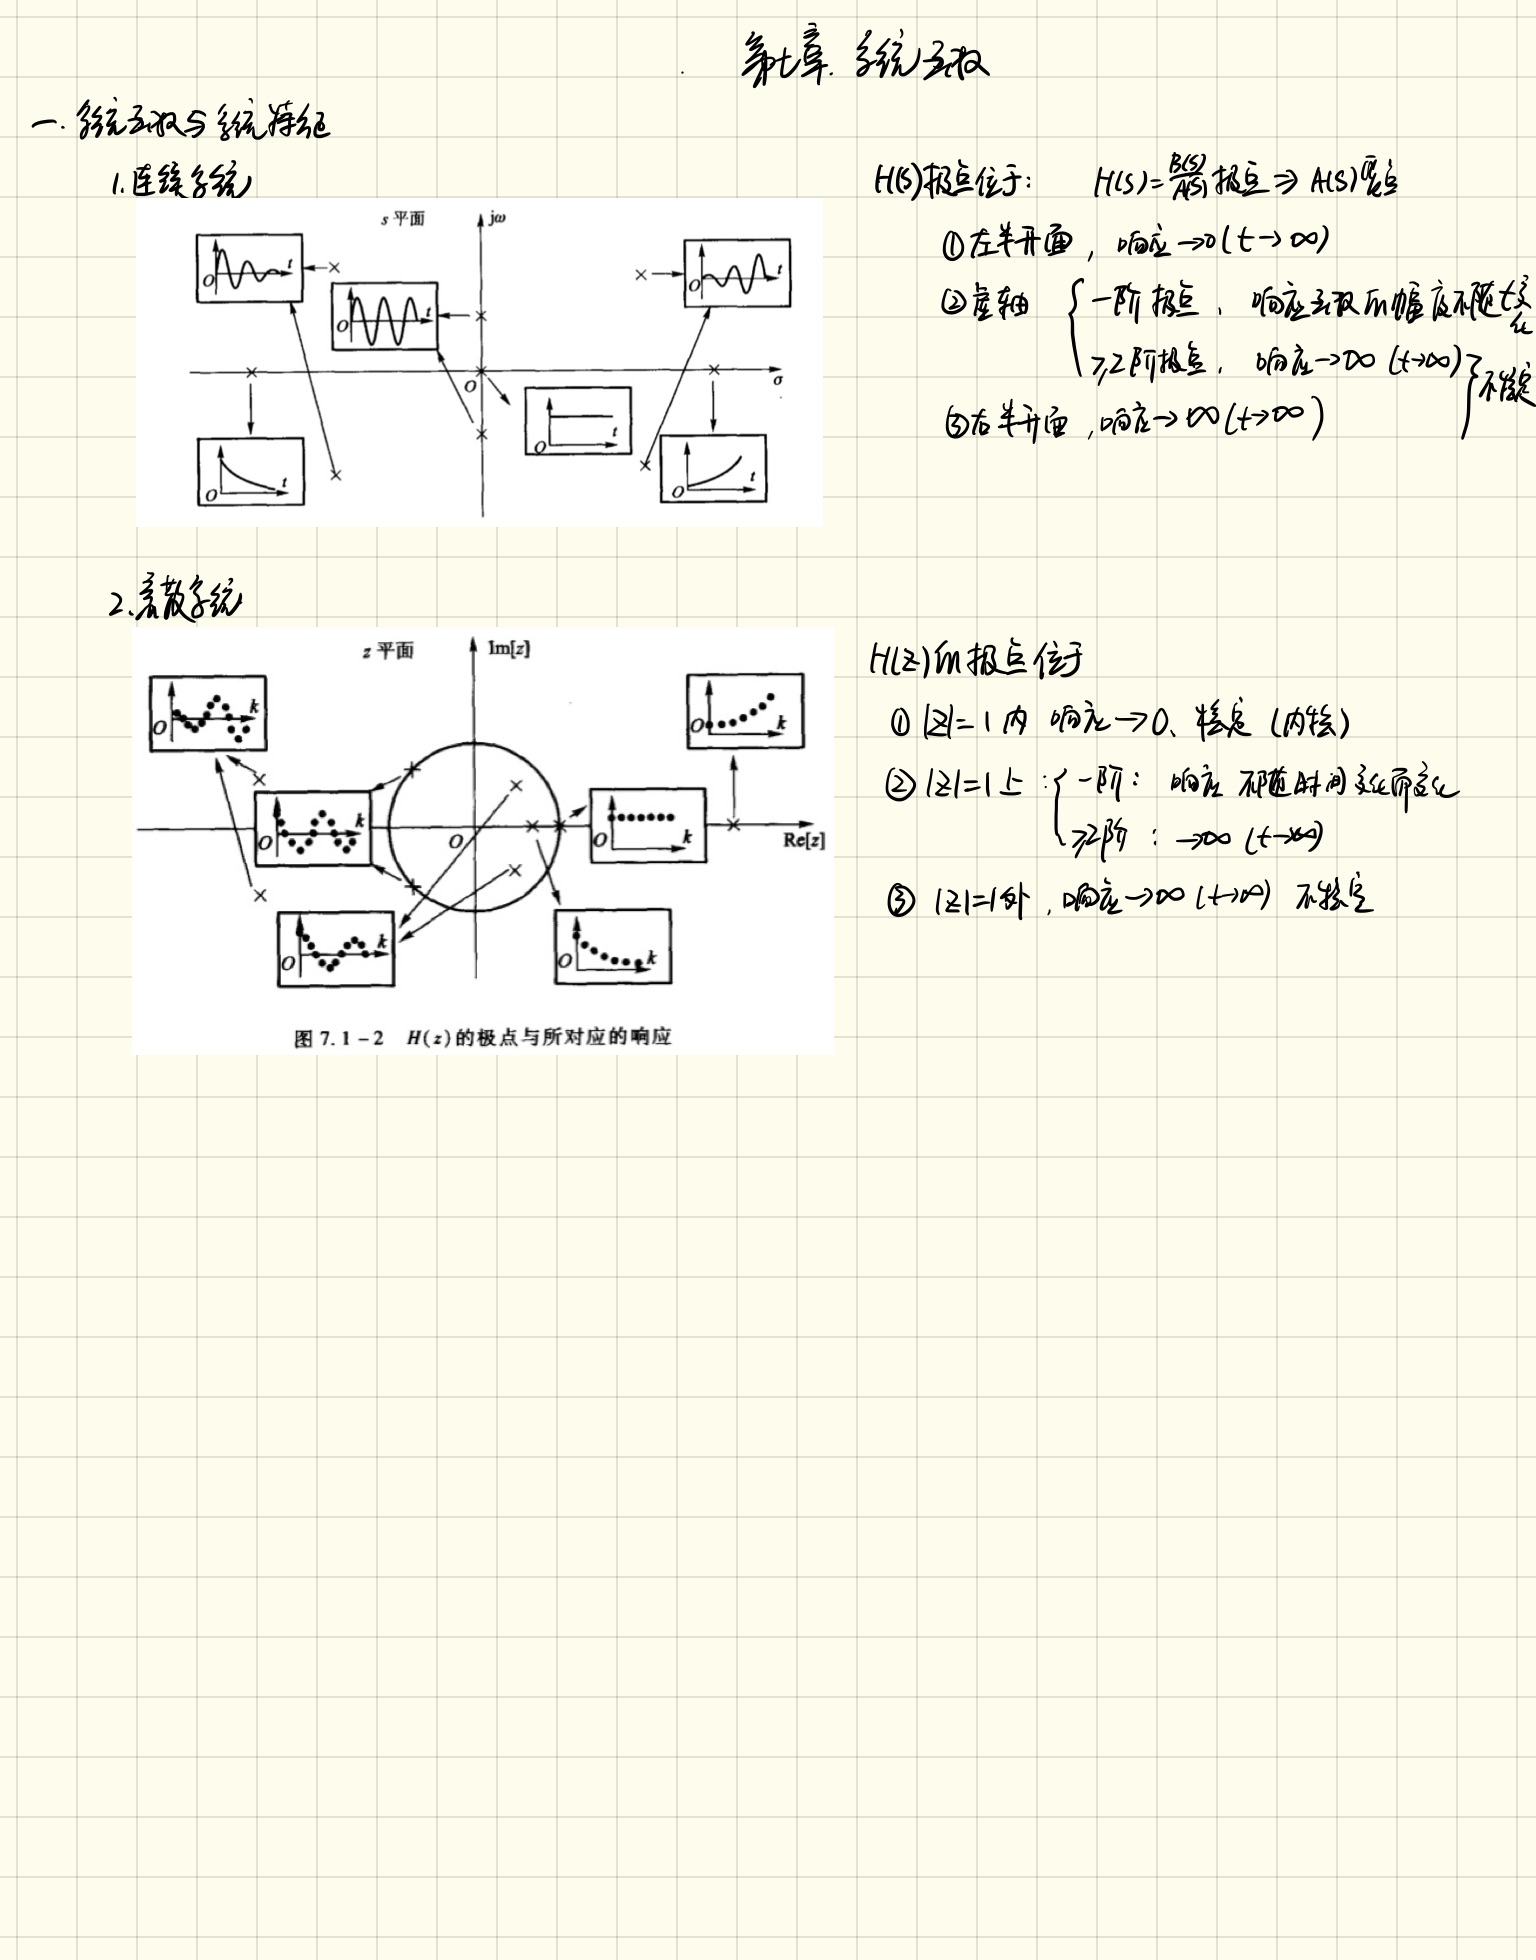 第七章. 系统函数
一. 系统函数与系统特征
1. 连续系统
s 平面
jω
σ
O
t
H(S)极点位于: H(S)=B(S)/A(S) 极点⇒A(S)零点
①左半开面, 响应→0(t→∞)
②虚轴 { 一阶极点, 响应函数的幅度不随t变化
≥2阶极点, 响应→∞ (t→∞) } 不稳定
③右半开面, 响应→∞(t→∞)
2. 离散系统
z 平面
Im[z]
Re[z]
O
k
图 7.1-2 H(z)的极点与所对应的响应
H(Z)的极点位于
① |Z|=1内 响应→0、稳定 (内稳)
② |Z|=1上: { 一阶: 响应不随时间变化而变化
≥2阶: →∞ (t→∞)
③ |Z|=1外, 响应→∞ (t→∞) 不稳定